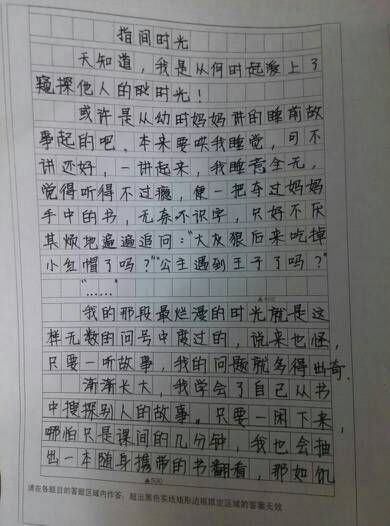 指间时光
天知道，我是从何时起爱上了
窥探他人的时光！
或许是从幼时妈妈讲的睡前故
事起的吧。本来要哄我睡觉，可不
讲还好，一讲起来，我睡意全无，
觉得听得不过瘾，便一把夺过妈妈
手中的书，无奈不识字，只好不厌
其烦地遍遍追问："大灰狼后来吃掉
小红帽了吗？""公主遇到王子了吗？"
"……"
▲400
我的那段最烂漫的时光就是这
样无数的问号中度过的，说来也怪，
只要一听故事，我的问题就多得出奇。
渐渐长大，我学会了自己从书
中搜探别人的故事。只要一闲下来，
哪怕只是课间的几分钟，我也会抽
出一本随身携带的书翻看，那如饥
▲500
请在各题目的答题区域内作答，超出黑色实线矩形边框限定区域的答案无效